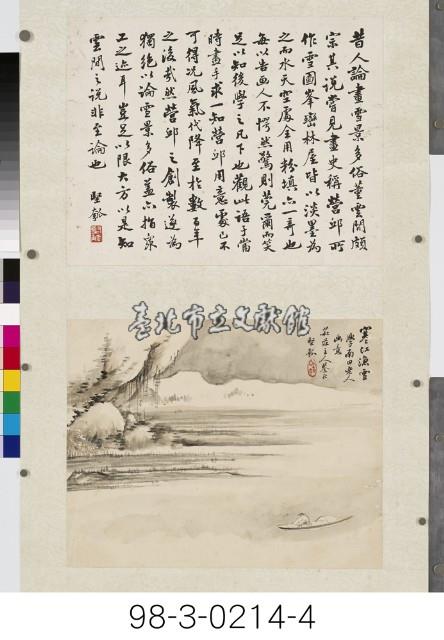 昔人論畫雪景多俗董雲間頗
宗其說嘗見畫史稱營邱所
作雪圖峯巒林屋皆以淡墨為
之而水天空處全用粉填亦一奇也
每以告畫人不愕然驚則莞爾而笑
足以知後學之凡下也觀此語于當
時畫手求一知營邱用意處已不
可得況風氣代降至於數百年
之後哉然營邱之創製遂為
獨絕以論雪景多俗蓋亦指衆
工之迹耳豈足以限大方以是知
雲間之說非至論也 堅龢
臺北市立文獻館
寒江漁雪
學南田老人
畫意
主人
堅龢
98-3-0214-4